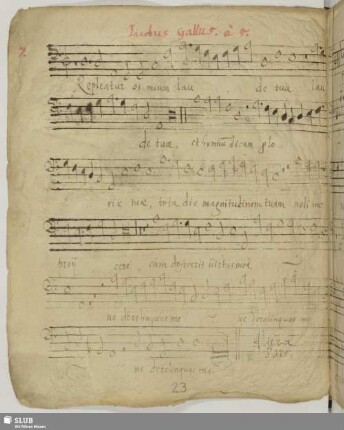 Iacobus Gallus. à 8.
7.
Repleatur os meum lau de tua lau
de tua, et hymnū dicam glo
riæ tuæ, tota die magnitudinem tuam noli me
cere, cum defecerit virtus mea
ne derelinquas me ne derelinquas me
Altera
Pars.
ne derelinquas me.
23
SLUB
Wir führen Wissen.